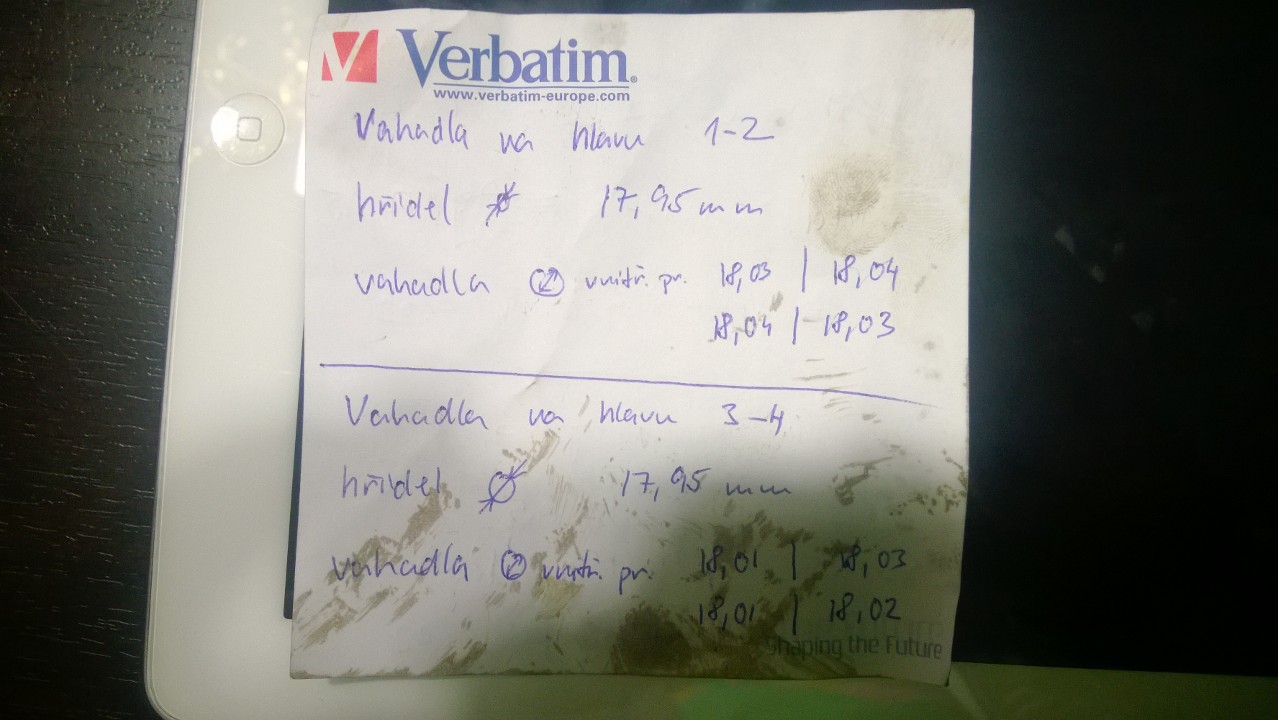 Verbatim
www.verbatim-europe.com
Vahadla na hlavu 1-2
hřídel ø 17,95 mm
vahadla vnitř. pr. 18,03 | 18,04
18,04 | 18,03
Vahadla na hlavu 3-4
hřídel ø 17,95 mm
vahadla vnitř. pr. 18,01 | 18,03
18,01 | 18,02
Shaping the Future